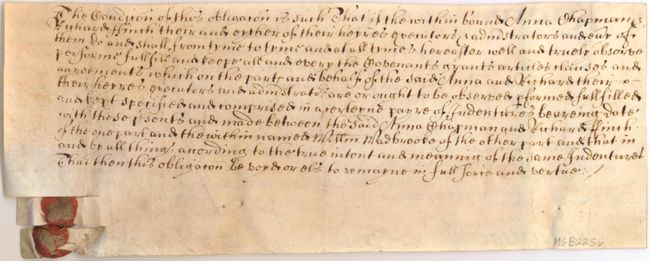 The Condicon of this obligacon is such That if the within bound Anna Chapman &
Richard ffinch their and eyther of their heyres executors & administrators and eur of
them do and shall from tyme to tyme and at all tymes hereafter well and truely observe
performe fullfill and keepe all and every the Covenants grants articles clauses and
agreements which on the part and behalf of the said Anna and Richard their
their heyres executors and admistrators are or ought to be observed pformed fullfilled
and kept specified and comprised in a certeyne payre of Indentures beareng date
with these psents and made between the said Anna Chapman and Richard ffinch
of the one part and the within named Willm of the other part and that in
and by all things according to the true intent and meaning of the same Indentures
That then this obligacon be voyd or els to remayne in full force and vertue
MGB2236